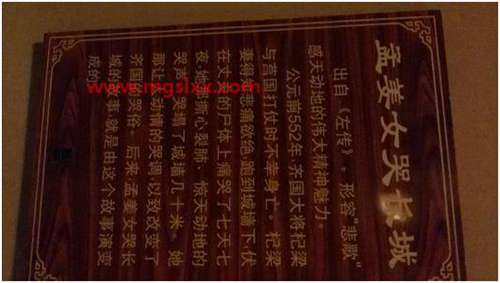 孟姜女哭长城
出自《左传》，形容“悲歌”
感天动地的伟大精神魅力。
公元前552年，齐国大将杞梁
与莒国打仗时不幸身亡。杞梁
妻得悲痛欲绝，跑到城墙下，伏
在丈夫的尸体上痛哭了七天七
夜，她那撕心裂肺、惊天动地的
哭声，哭塌了城墙几十米。她
那让人动情的哭调，以致改变了
齐国的哭俗。后来孟姜女哭长
城的故事，就是由这个故事演变
成的。
www.mgslxx.com